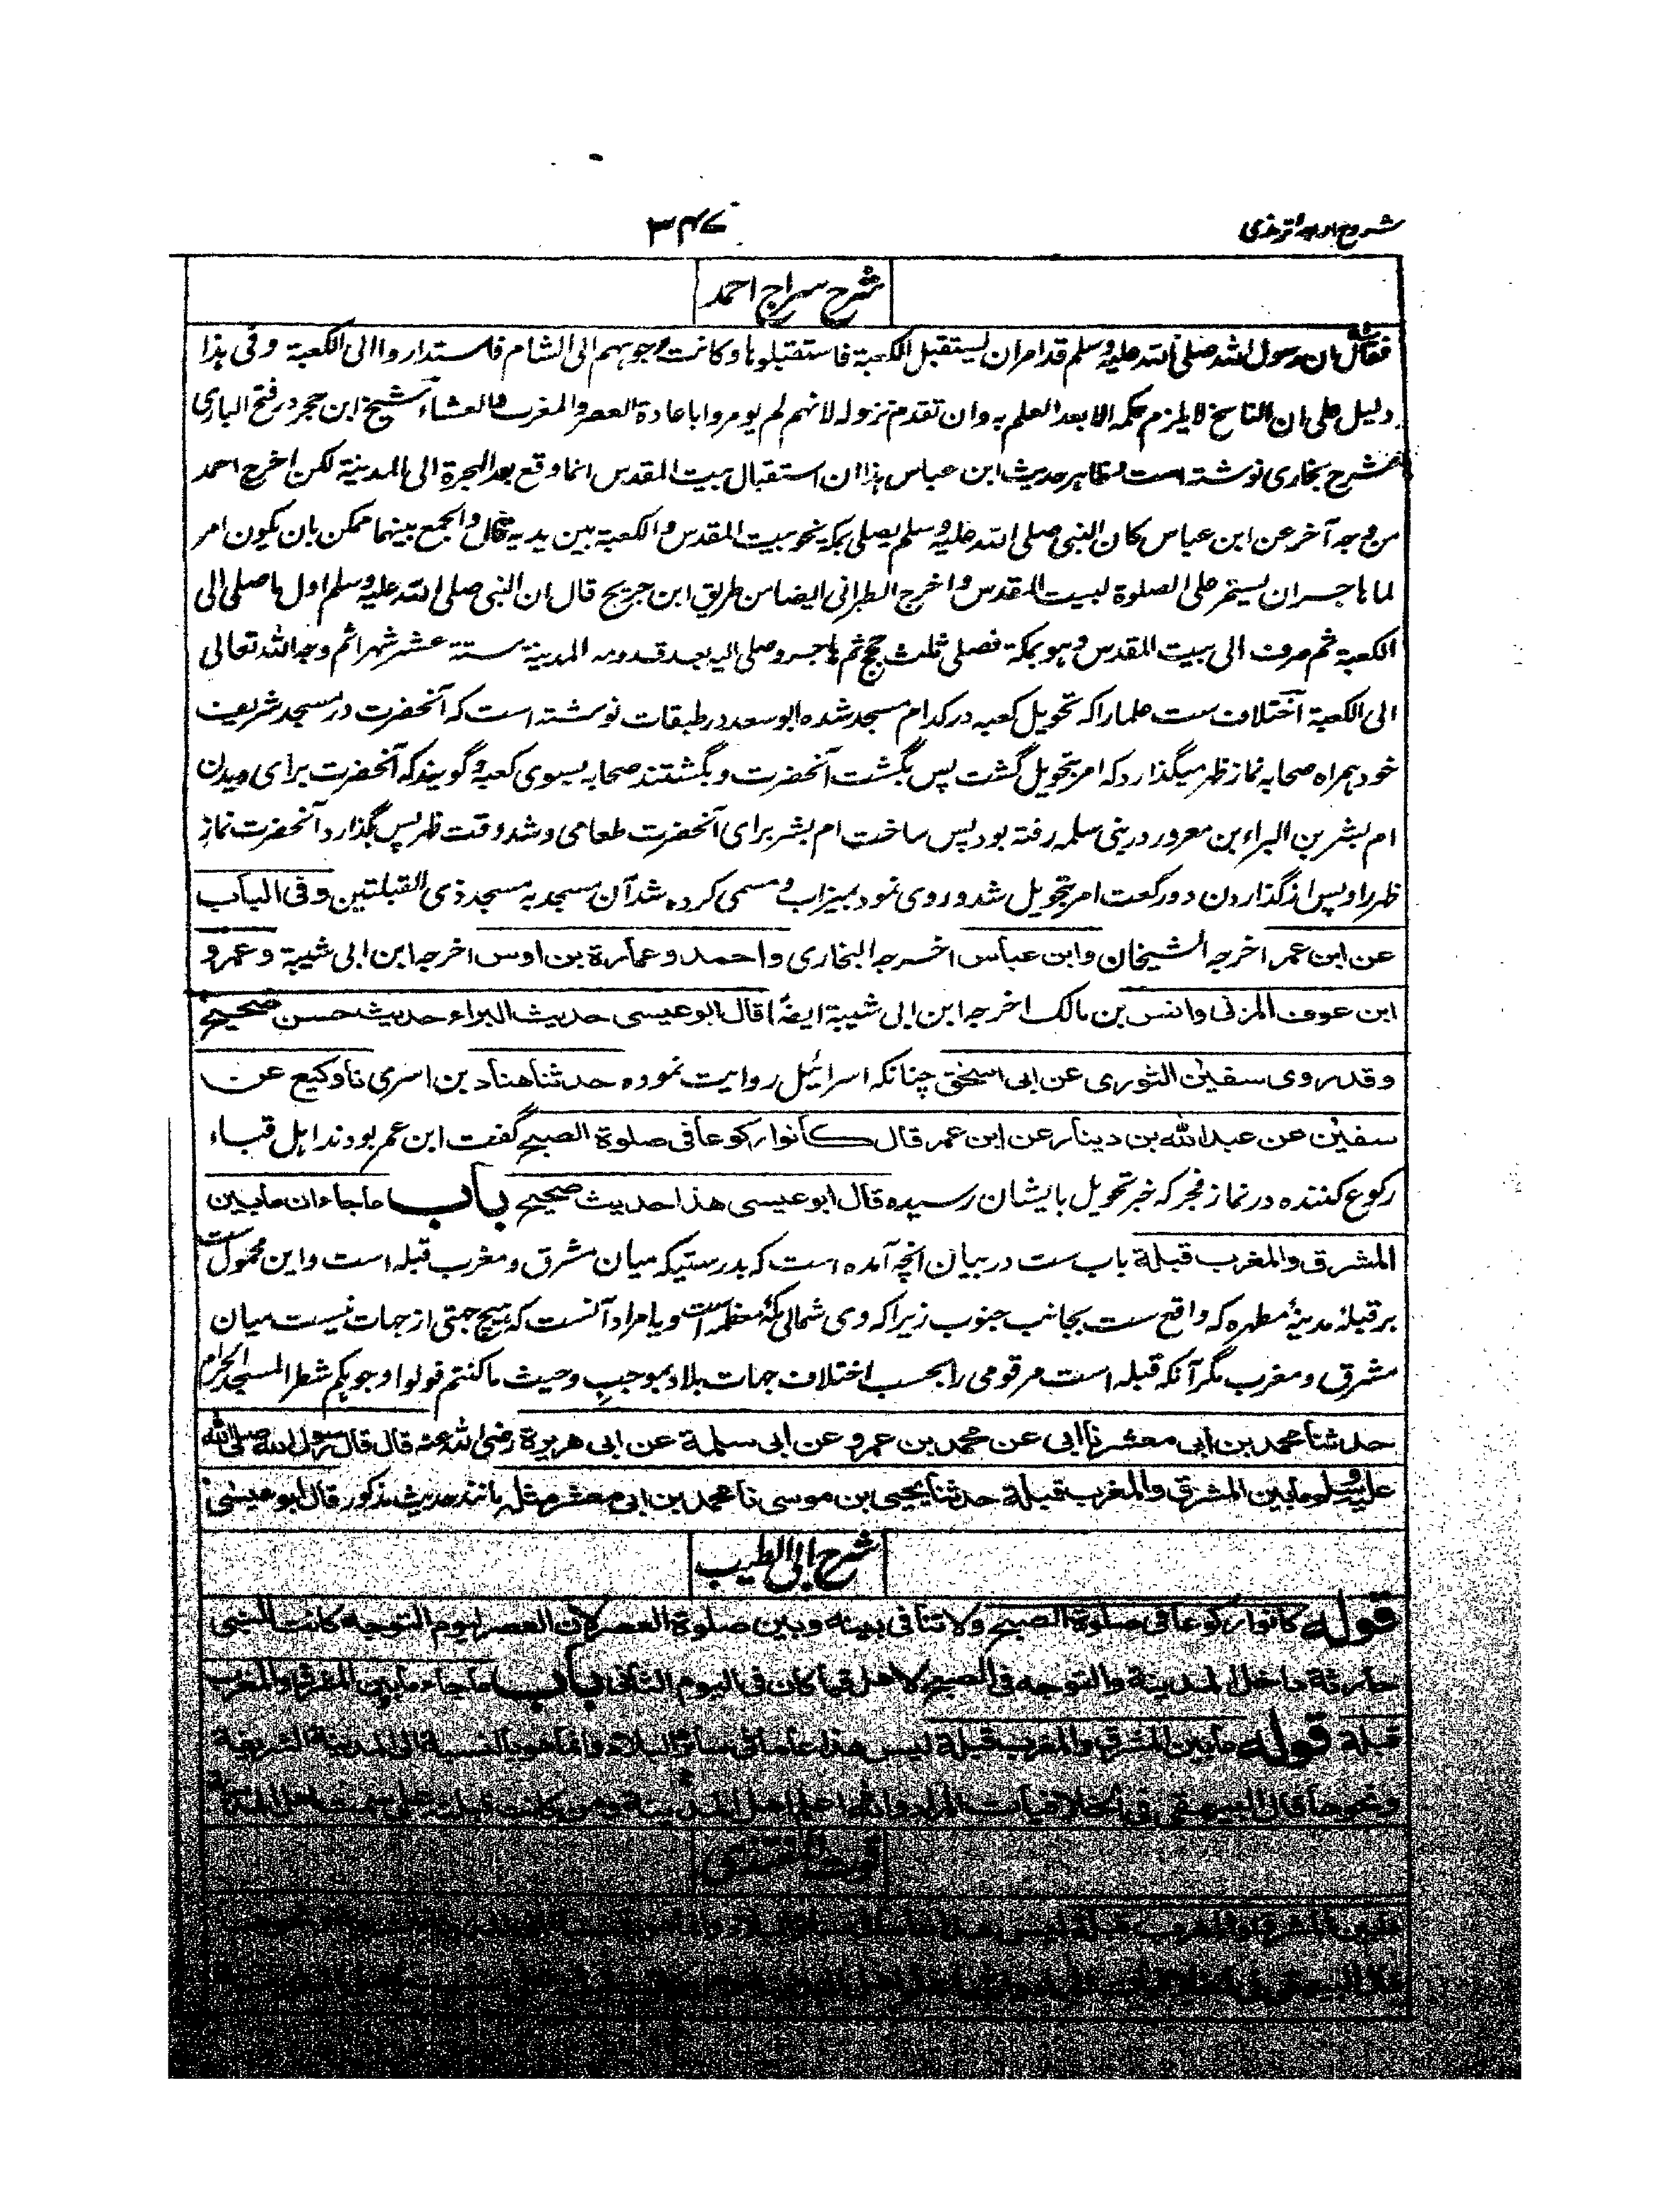 شروح اربعه ترمذی
۳۴۷
شرح سراج احمد
فقال ان رسول الله صلی الله علیه وسلم قد امر ان یستقبل الکعبة فاستقبلوها وکانت وجوههم الی الشام فاستداروا الی الکعبة وفی هذا
دلیل علی ان الناسخ لا یلزم حکمه الا بعد العلم به وان تقدم نزوله لانهم لم یومروا باعادة العصر والمغرب والعشاء شیخ ابن حجر در فتح الباری
شرح بخاری نوشته است وظاهر حدیث ابن عباس هذا ان استقبال بیت المقدس انما وقع بعد الهجرة الی المدینة لکن اخرج احمد
من وجه آخر عن ابن عباس کان النبی صلی الله علیه وسلم یصلی بمکه نحو بیت المقدس والکعبة بین یدیه قال والجمع بینهما ممکن بان یکون امر
لما هاجر ان یستمر علی الصلوة لبیت المقدس واخرج الطبرانی ایضا من طریق ابن جریج قال ان النبی صلی الله علیه وسلم اول ما صلی الی
الکعبة ثم صرف الی بیت المقدس وهو بمکة فصلی ثلث حجج ثم هاجر وصلی الیه بعد قدومه المدینة ستة عشر شهرا ثم وجه الله تعالی
الی الکعبة اختلاف ست علما را که تحویل کعبه در کدام مسجد شده ابو سعد در طبقات نوشته است که آنحضرت در مسجد شریف
خود همراه صحابه نماز ظهر میگذارد که امر بتحویل گشت پس بگشت آنحضرت و بگشتند صحابه بسوی کعبه و گویند که آنحضرت برای دیدن
ام بشر بن البراء بن معرور در بنی سلمه رفته بود پس ساخت ام بشر برای آنحضرت طعامی و شد وقت ظهر پس بگذارد آنحضرت نماز
ظهر را و پس از گذاردن دو رکعت امر بتحویل شد و روی نمود بمیزاب و مسمی کرده شد آن مسجد به مسجد ذی القبلتین وفی الباب
عن ابن عمر اخرجه الشیخان وابن عباس اخرجه البخاری واحمد وعمارة بن اوس اخرجه ابن ابی شیبة وعمرو
ابن عوف المزنی وانس بن مالک اخرجه ابن ابی شیبة ایضاً قال ابو عیسی حدیث البراء حدیث حسن صحیح
وقد روی سفین الثوری عن ابی اسحٰق چنانکه اسرائیل روایت نموده حدثنا هناد بن السری نا وکیع عن
سفین عن عبد الله بن دینار عن ابن عمر قال کانوا رکوعا فی صلوة الصبح گفت ابن عمر بودند اهل قباء
رکوع کننده در نماز فجر که خبر تحویل بایشان رسیده قال ابو عیسی هذا حدیث صحیح باب ما جاء ان ما بین
المشرق والمغرب قبلة باب ست در بیان انچه آمده است که بدرستیکه میان مشرق و مغرب قبله است واین محمول ست
بر قبلهٔ مدینهٔ مطهره که واقع ست بجانب جنوب زیرا که وی شمالی مکهٔ معظمه است و یا مراد آنست که هیچ جهتی از جهات نیست میان
مشرق و مغرب مگر آنکه قبله است مر قومی را بحسب اختلاف جهات بلاد بموجب وحیث ما کنتم فولوا وجوهکم شطر المسجد الحرام
حدثنا محمد بن ابی معشر نا ابی عن محمد بن عمرو عن ابی سلمة عن ابی هریرة رضی الله عنه قال قال رسول الله صلی الله
علیه وسلم ما بین المشرق والمغرب قبلة حدثنا یحیی بن موسی نا محمد بن ابی معشر مثله مانند حدیث مذکور قال ابو عیسی
شرح ابی الطیب
قوله کانوا رکوعا فی صلوة الصبح ولا تنافی بینه وبین صلوة العصر لان العصر یوم التوجه کانت لبنی
حارثة داخل المدینة والتوجه فی الصبح لاهل قبا کان فی الیوم الثانی باب ما جاء ما بین المشرق والمغرب
قبلة قوله ما بین المشرق والمغرب قبلة لیس هذا عاما فی سائر البلاد وانما هو بالنسبة الی المدینة الشریفة
ونحوها قال البیهقی فی الخلافیات المراد والله اعلم اهل المدینة ومن کانت قبلته علی سمت اهل المدینة
قوت المغتذی
ما بین المشرق والمغرب قبلة لیس هذا